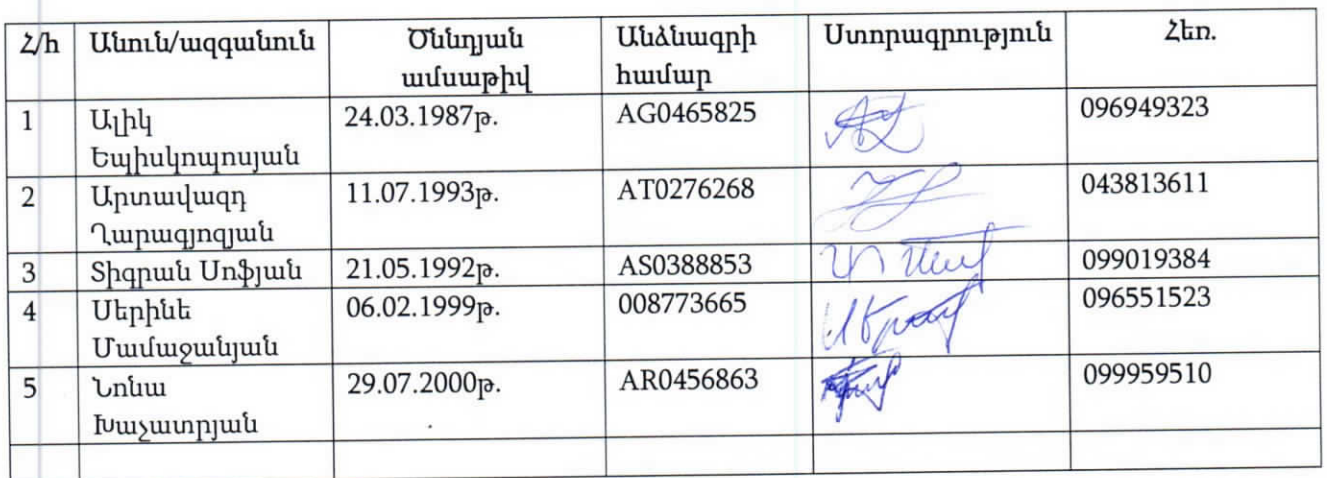 Հ/հ Անուն/ազգանուն Ծննդյան ամսաթիվ Անձնագրի համար Ստորագրություն Հեռ.
1 Ալիկ Եպիսկոպոսյան 24.03.1987թ. AG0465825 096949323
2 Արտավազդ Ղարագյոզյան 11.07.1993թ. AT0276268 043813611
3 Տիգրան Սոֆյան 21.05.1992թ. AS0388853 099019384
4 Սերինե Մամաջանյան 06.02.1999թ. 008773665 096551523
5 Նոնա Խաչատրյան 29.07.2000թ. AR0456863 099959510